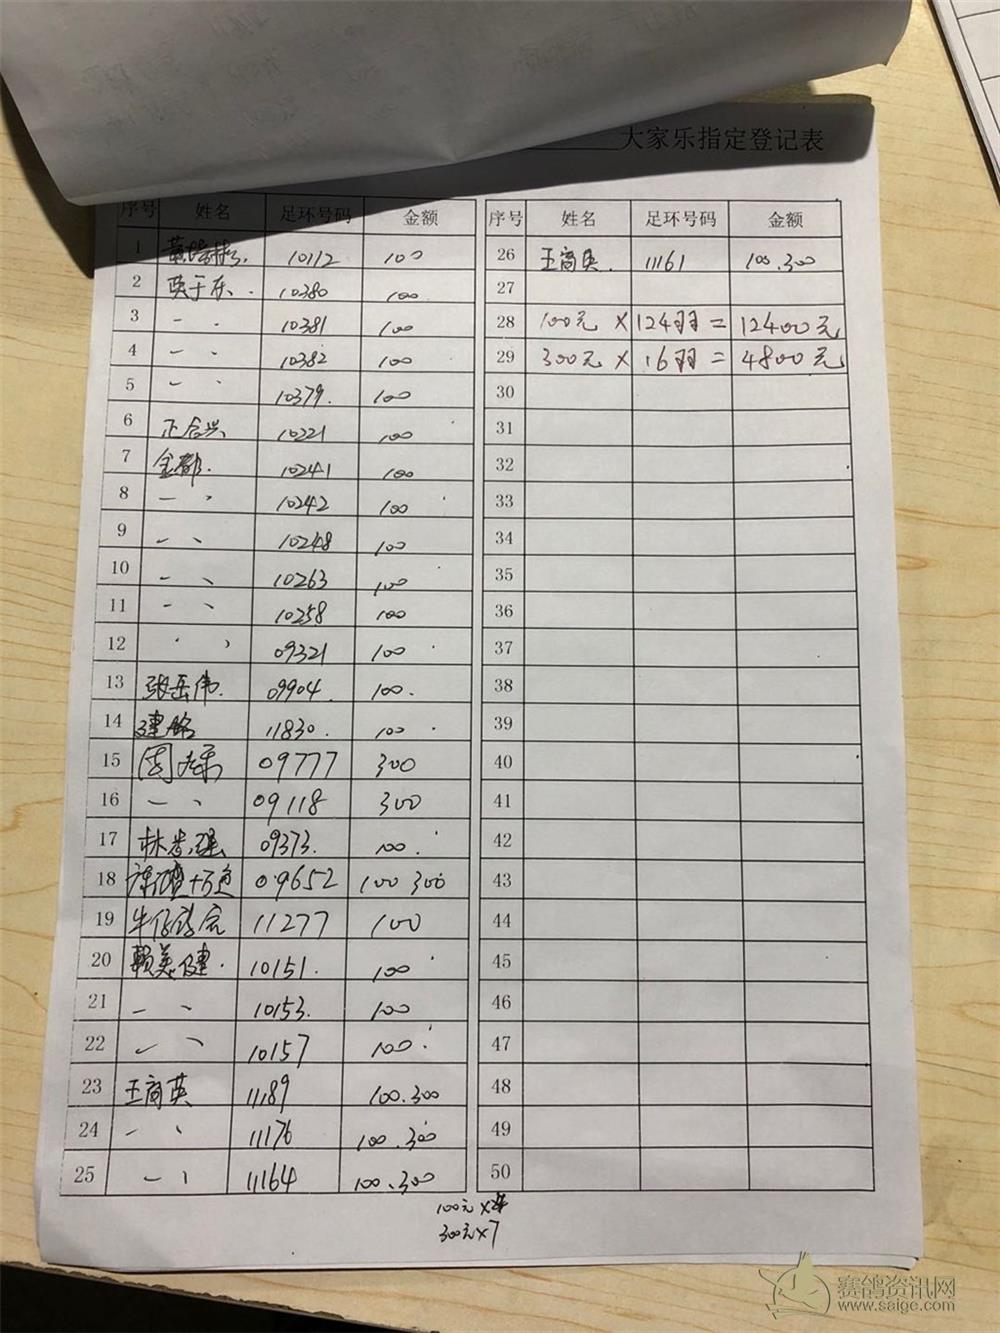 大家乐指定登记表
序号 姓名 足环号码 金额
1 10112 100
2 英于东. 10380 100
3 一 、 10381 100
4 一 、 10382 100
5 一 、 10379. 100
6 正合兴 10221 100
7 金都. 10241 100
8 一 、 10242 100
9 一 、 10248 100
10 一 、 10263 100
11 一 、 10258 100
12 、 、 09321 100
13 张岳伟. 09904. 100.
14 建铭 11830. 100
15 09777 300
16 一 、 09118 300
17 09373. 100.
18 09652 100 300
19 11277 100
20 赖美健. 10151. 100
21 一 、 10153. 100
22 一 、 10157 100.
23 王商英 11189 100.300
24 一 、 11176 100.300
25 一 、 11164 100.300
序号 姓名 足环号码 金额
26 王商英. 11161 100.300
27
28 100元 × 124羽 = 12400元
29 300元 × 16羽 = 4800元
30
31
32
33
34
35
36
37
38
39
40
41
42
43
44
45
46
47
48
49
50
100元 ×
300元×7
赛鸽资讯网
www.saige.com